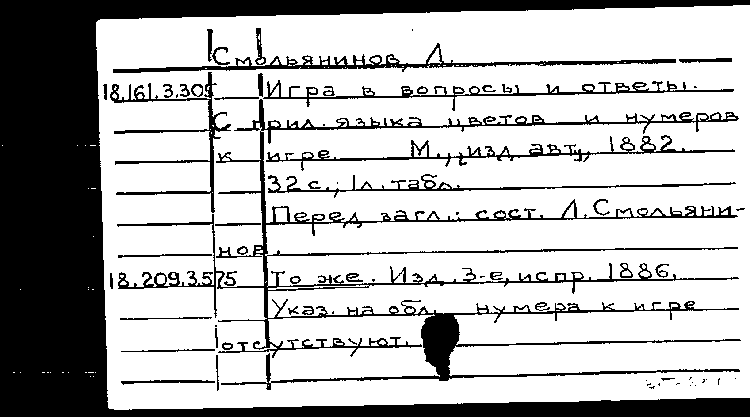 Смольянинов, Л.
18.161.3.305 Игра в вопросы и ответы.
С прил. языка цветов и нумеров
к игре. М., изд. авт., 1882.
32 с., 1 л. табл.
Перед загл.: сост. Л. Смольяни-
нов.
18.209.3.575 То же. Изд. 3-е, испр. 1886.
Указ. на обл. нумера к игре
отсутствуют.